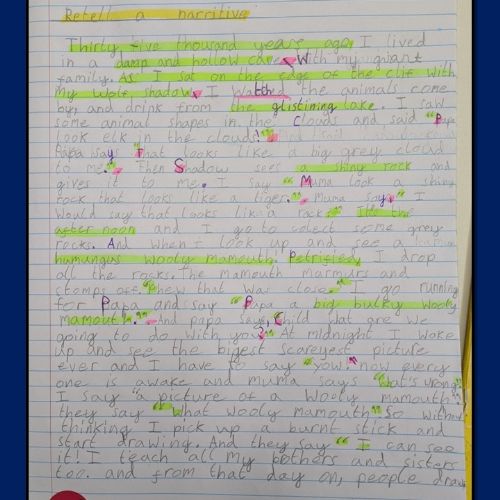 Retell a narritive
Thirty five thousand years ago, I lived
in a damp and hollow cave. With my giant
family. As I sat on the edge of the clif with
my Wolf, shadow, I Watched the animals come
by, and drink from the glistining lake. I saw
some animal shapes in the clouds and said "Papa
look elk in the clouds!"
Papa says "That looks like a big grey cloud
to me." Then Shadow sees a shiny rock and
gives it to me. I say "Muma look a shiny
rock that looks like a tiger." Muma says "I
would say that looks like a rock." It's the
after noon and I go to colect some grey
rocks. And when I look up and see a
humungus wooly mamouth. Petrified, I drop
all the rocks. The mamouth marmurs and
stomps off. Phew that was close. I go running
for Papa and say "Papa a big bulky wooly
mamouth." And papa says, Child wat are we
going to do with you?" At midnight I woke
up and see the bigest scareyest picture
ever and I have to say "you!" now every
one is awake and muma says "what's wrong"
I say "a picture of a Wooly mamouth."
they say "What wooly mamouth" so without
thinking I pick up a burnt stick and
start drawing. And they say "I can see
it! I teach all my bothers and sisters
too. and from that day on, people draw